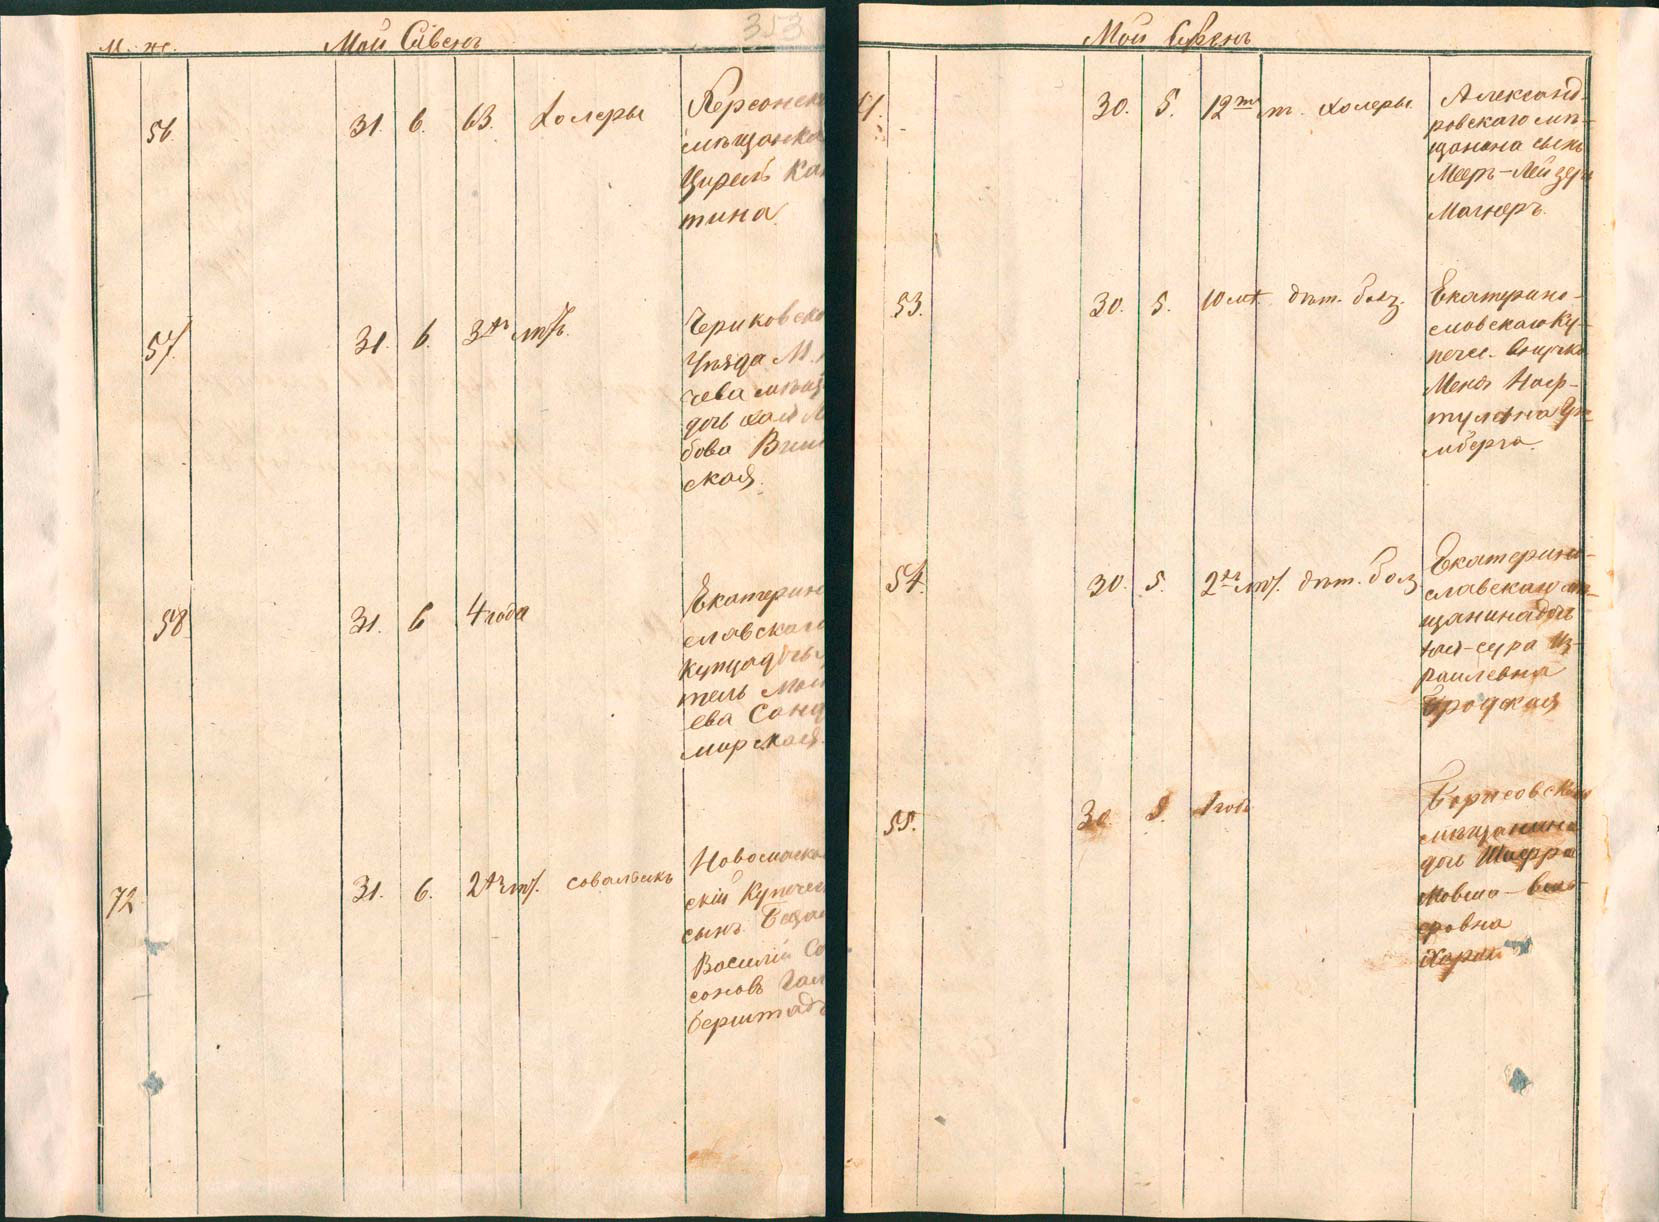 353
М. ж. Май Сивенъ
56. 31. 6. 63. Холеры Херсонск
мѣщанка
Цирель Ка
тина.
57. 31. 6. 3хъ м/. Чериковско
Уѣзда М
чева мѣщ
дочь Хая
бова
ская.
58. 31. 6 4 года Екатерино
славскаго
купца дочь
тель Мои
ева Сенд
мирская.
72 31. 6. 2хъ м/. Новомоско
скій Купечес
сынъ
Василій Со
соновъ Гал
берштадъ
Май Сивенъ
71. 30. 5. 12ти м. холеры Александ-
ровскаго мѣ-
щанина сынъ
Мееръ-Лейзеръ
Магнеръ.
53. 30. 5. 10 м. дѣт. болѣз. Екатерино-
славскаго Ку-
печес. внучка
Меня Наф-
тулина
мберга.
54. 30. 5. 2хъ м/. дѣт. бол Екатерино-
славскаго мѣ-
щанина дочь
сура Из-
раилевна
Бродская
55. 30. 5. 1 годъ Борисовскаго
мѣщанина
дочь Шифра
Мовша-
ровна